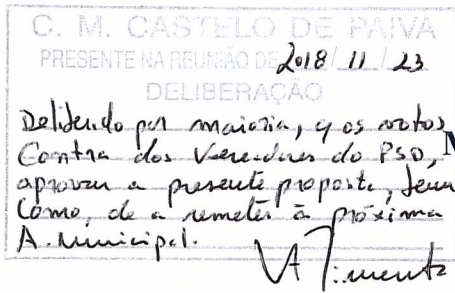 C. M. CASTELO DE PAIVA
PRESENTE NA REUNIÃO DE 2018/11/23
DELIBERAÇÃO
Deliberado por maioria, c/ os votos
Contra dos Vereadores do PSD,
aprovar a presente proposta, bem
como, de a remeter à próxima
A. Municipal.